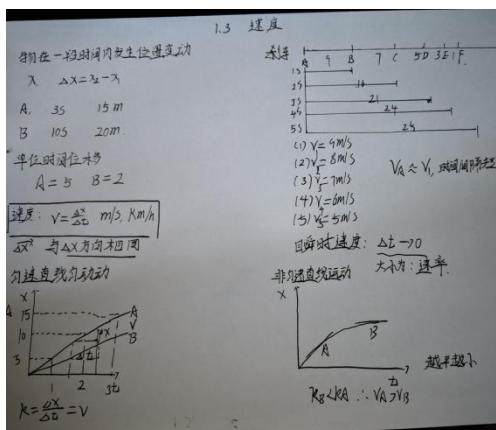 1.3 速度
物在一段时间内发生位置变动
x Δx=x₂-x₁
A. 3s 15m
B 10s 20m.
单位时间位移
A=5 B=2
速度: v=Δx/Δt m/s, km/h
与Δx方向相同
匀速直线运动
x
A 15
10
5
1 2 3 t
A
V
B
Δx
Δt
k=Δx/Δt=v
A 9 B 7 C 5 D 3 E 1 F
1s
2s 16
3s 21
4s 24
5s 25
(1) v=9m/s
(2) v=8m/s
(3) v=7m/s
(4) v=6m/s
(5) v=5m/s
VA≈V₁,
瞬时速度: Δt→0
大小为: 速率.
非匀速直线运动
x
A
B
t
kB<kA ∴ VA>VB